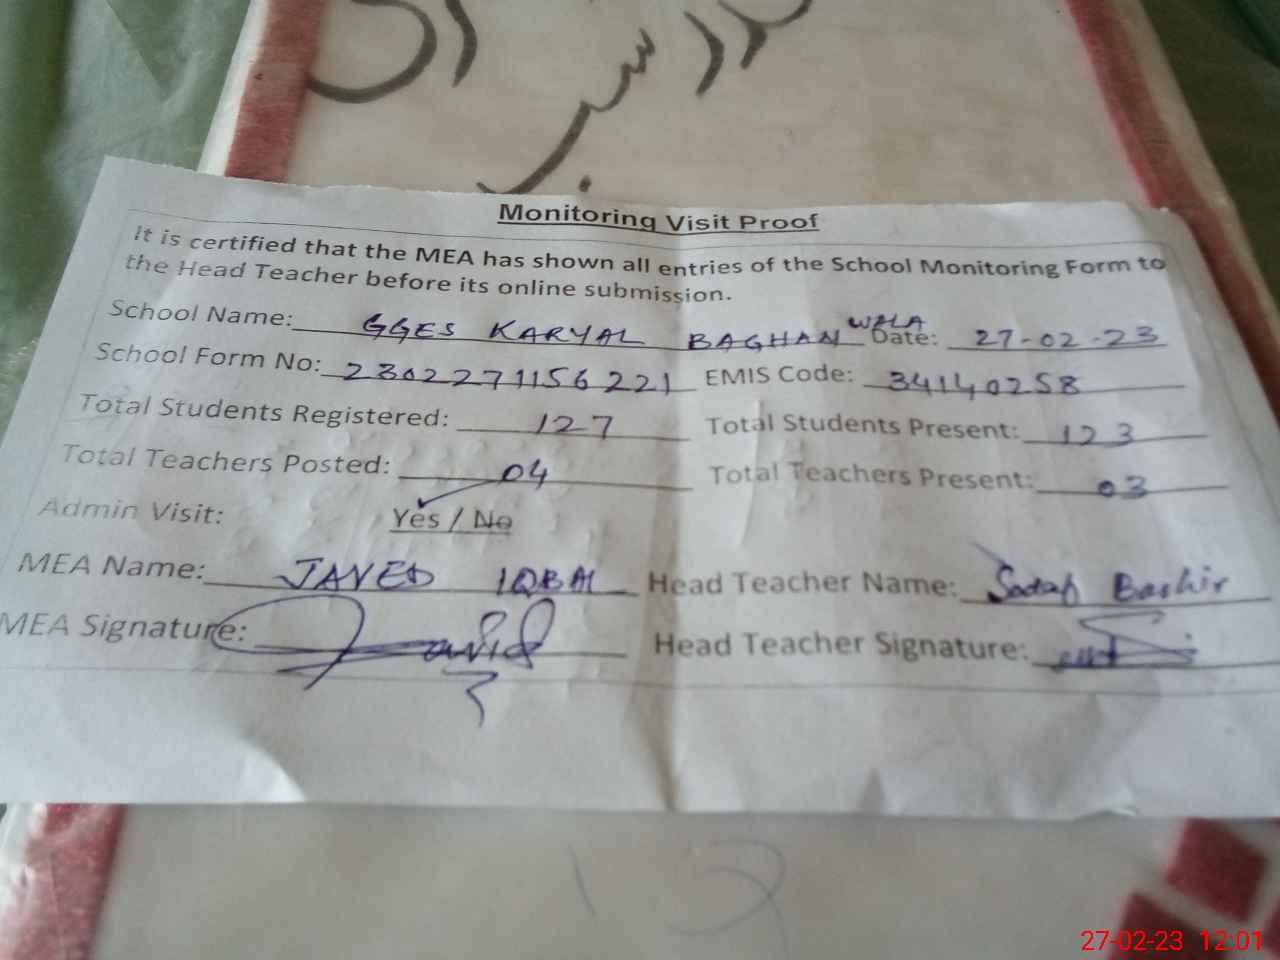 Monitoring Visit Proof
It is certified that the MEA has shown all entries of the School Monitoring Form to
the Head Teacher before its online submission.
School Name: GGES KARYAL BAGHAN WALA Date: 27-02-23
School Form No: 2302271156221 EMIS Code: 34140258
Total Students Registered: 127 Total Students Present: 123
Total Teachers Posted: 04 Total Teachers Present: 03
Admin Visit: Yes / No
MEA Name: JAVED IQBAL Head Teacher Name: Bashir
MEA Signature: Javid Head Teacher Signature:
27-02-23 12:01